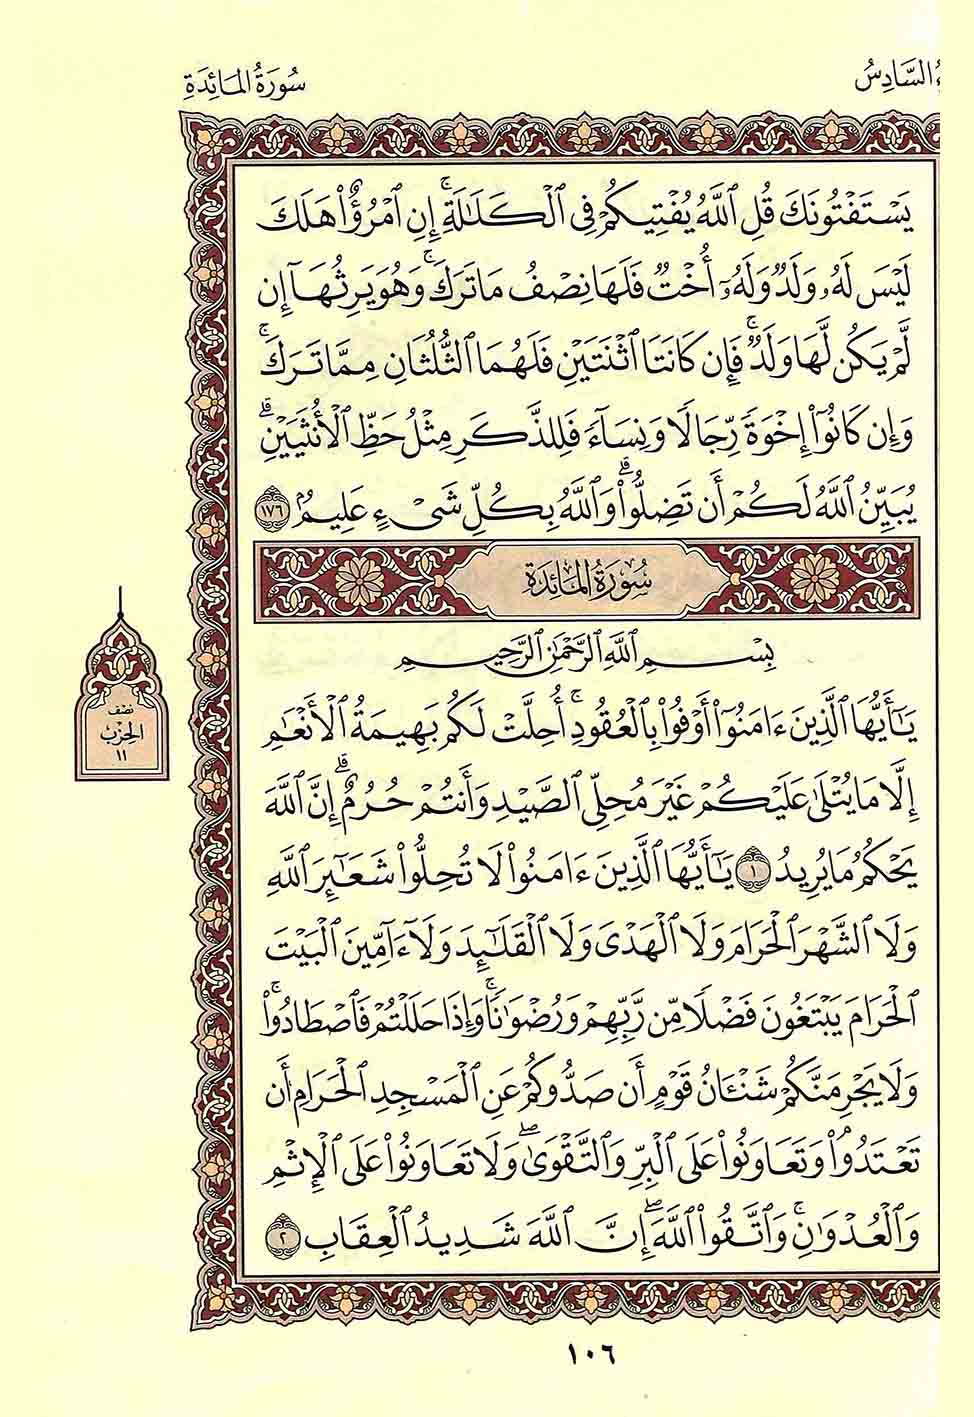 ءُ السَّادِسُ
سُورَةُ المَائِدَةِ
يَسْتَفْتُونَكَ قُلِ ٱللَّهُ يُفْتِيكُمْ فِى ٱلْكَلَٰلَةِ ۚ إِنِ ٱمْرُؤٌا۟ هَلَكَ
لَيْسَ لَهُۥ وَلَدٌ وَلَهُۥٓ أُخْتٌ فَلَهَا نِصْفُ مَا تَرَكَ ۚ وَهُوَ يَرِثُهَآ إِن
لَّمْ يَكُن لَّهَا وَلَدٌ ۚ فَإِن كَانَتَا ٱثْنَتَيْنِ فَلَهُمَا ٱلثُّلُثَانِ مِمَّا تَرَكَ ۚ
وَإِن كَانُوٓا۟ إِخْوَةً رِّجَالًا وَنِسَآءً فَلِلذَّكَرِ مِثْلُ حَظِّ ٱلْأُنثَيَيْنِ ۗ
يُبَيِّنُ ٱللَّهُ لَكُمْ أَن تَضِلُّوا۟ ۗ وَٱللَّهُ بِكُلِّ شَىْءٍ عَلِيمٌۢ ١٧٦
سُورَةُ المَائِدَةِ
بِسْمِ ٱللَّهِ ٱلرَّحْمَٰنِ ٱلرَّحِيمِ
يَٰٓأَيُّهَا ٱلَّذِينَ ءَامَنُوٓا۟ أَوْفُوا۟ بِٱلْعُقُودِ ۚ أُحِلَّتْ لَكُم بَهِيمَةُ ٱلْأَنْعَٰمِ
إِلَّا مَا يُتْلَىٰ عَلَيْكُمْ غَيْرَ مُحِلِّى ٱلصَّيْدِ وَأَنتُمْ حُرُمٌ ۗ إِنَّ ٱللَّهَ
يَحْكُمُ مَا يُرِيدُ ١ يَٰٓأَيُّهَا ٱلَّذِينَ ءَامَنُوا۟ لَا تُحِلُّوا۟ شَعَٰٓئِرَ ٱللَّهِ
وَلَا ٱلشَّهْرَ ٱلْحَرَامَ وَلَا ٱلْهَدْىَ وَلَا ٱلْقَلَٰٓئِدَ وَلَآ ءَآمِّينَ ٱلْبَيْتَ
ٱلْحَرَامَ يَبْتَغُونَ فَضْلًا مِّن رَّبِّهِمْ وَرِضْوَٰنًا ۚ وَإِذَا حَلَلْتُمْ فَٱصْطَادُوا۟ ۚ
وَلَا يَجْرِمَنَّكُمْ شَنَـَٔانُ قَوْمٍ أَن صَدُّوكُمْ عَنِ ٱلْمَسْجِدِ ٱلْحَرَامِ أَن
تَعْتَدُوا۟ ۘ وَتَعَاوَنُوا۟ عَلَى ٱلْبِرِّ وَٱلتَّقْوَىٰ ۖ وَلَا تَعَاوَنُوا۟ عَلَى ٱلْإِثْمِ
وَٱلْعُدْوَٰنِ ۚ وَٱتَّقُوا۟ ٱللَّهَ ۖ إِنَّ ٱللَّهَ شَدِيدُ ٱلْعِقَابِ ٢
نصف
الحِزْب
١١
١٠٦